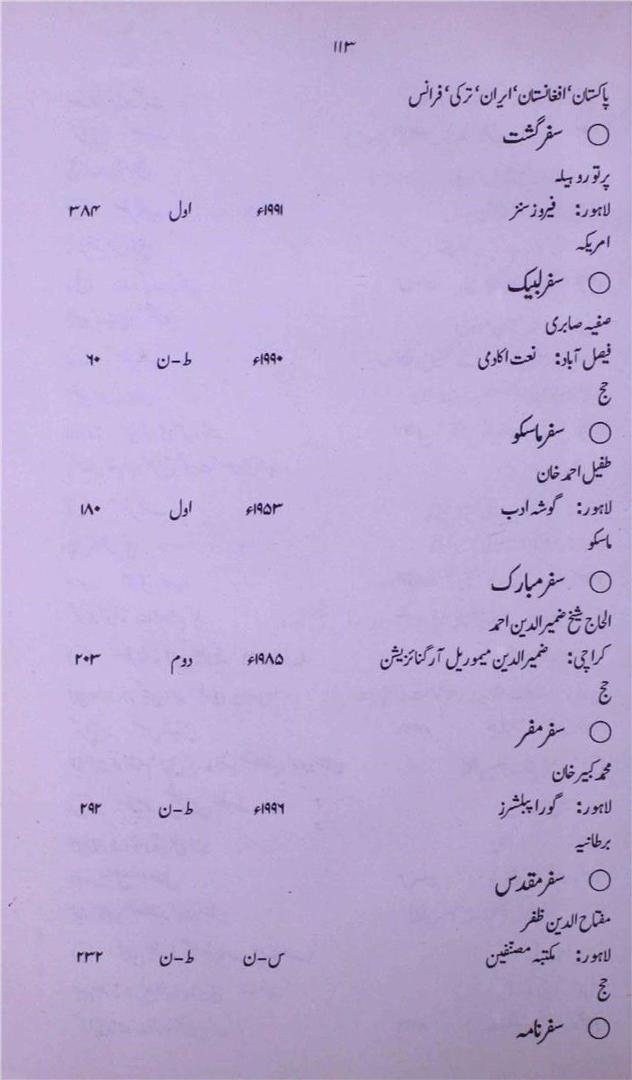 ۱۱۳
پاکستان‘ افغانستان‘ ایران‘ ترکی‘ فرانس
○ سفر گشت
پرتو روہیلہ
لاہور: فیروز سنز ۱۹۹۱ء اول ۳۸۴
امریکہ
○ سفر لبیک
صفیہ صابری
فیصل آباد: نعت اکادمی ۱۹۹۰ء ط-ن ۶۰
حج
○ سفر ماسکو
طفیل احمد خان
لاہور: گوشہ ادب ۱۹۵۳ء اول ۱۸۰
ماسکو
○ سفر مبارک
الحاج شیخ ضمیر الدین احمد
کراچی: ضمیر الدین میموریل آرگنائزیشن ۱۹۸۵ء دوم ۲۰۳
حج
○ سفر مفر
محمد کبیر خان
لاہور: گورا پبلشرز ۱۹۹۶ء ط-ن ۲۹۲
برطانیہ
○ سفر مقدس
مفتاح الدین ظفر
لاہور: مکتبہ مصنفین س-ن ط-ن ۲۳۲
حج
○ سفر نامہ